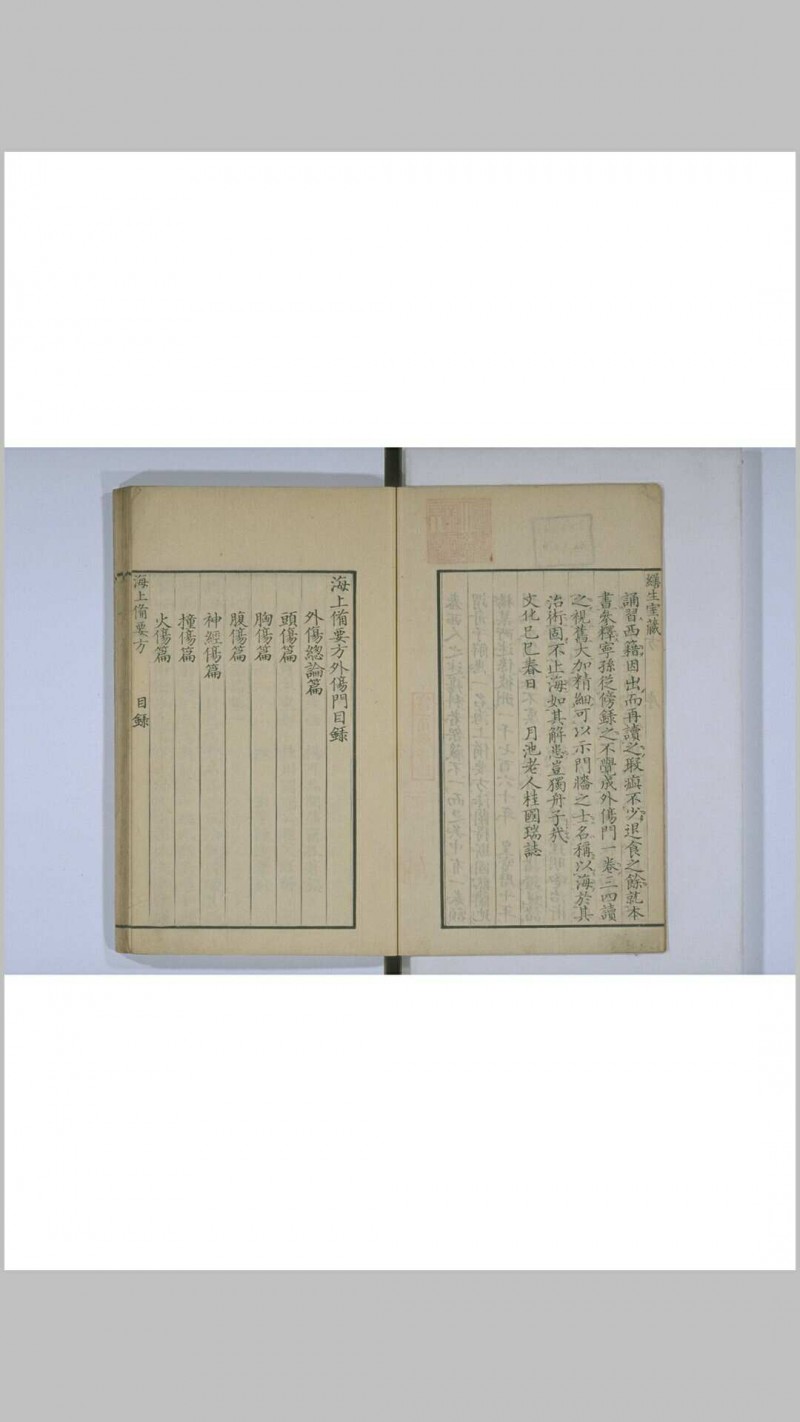 繕生室藏
誦習西籍因出而再讀之瑕瘢不少退食之餘就本
書矣釋寧孫從傍錄之不覺成外傷門一卷三四讀
之視舊大加精細可以示門牆之士名稱以海於其
治術固不止海如其解患豈獨舟子哉
文化己巳春日 月池老人桂國瑞誌
海上備要方外傷門目錄
外傷總論篇
頭傷篇
胸傷篇
腹傷篇
神經傷篇
撞傷篇
火傷篇
海上備要方 目錄